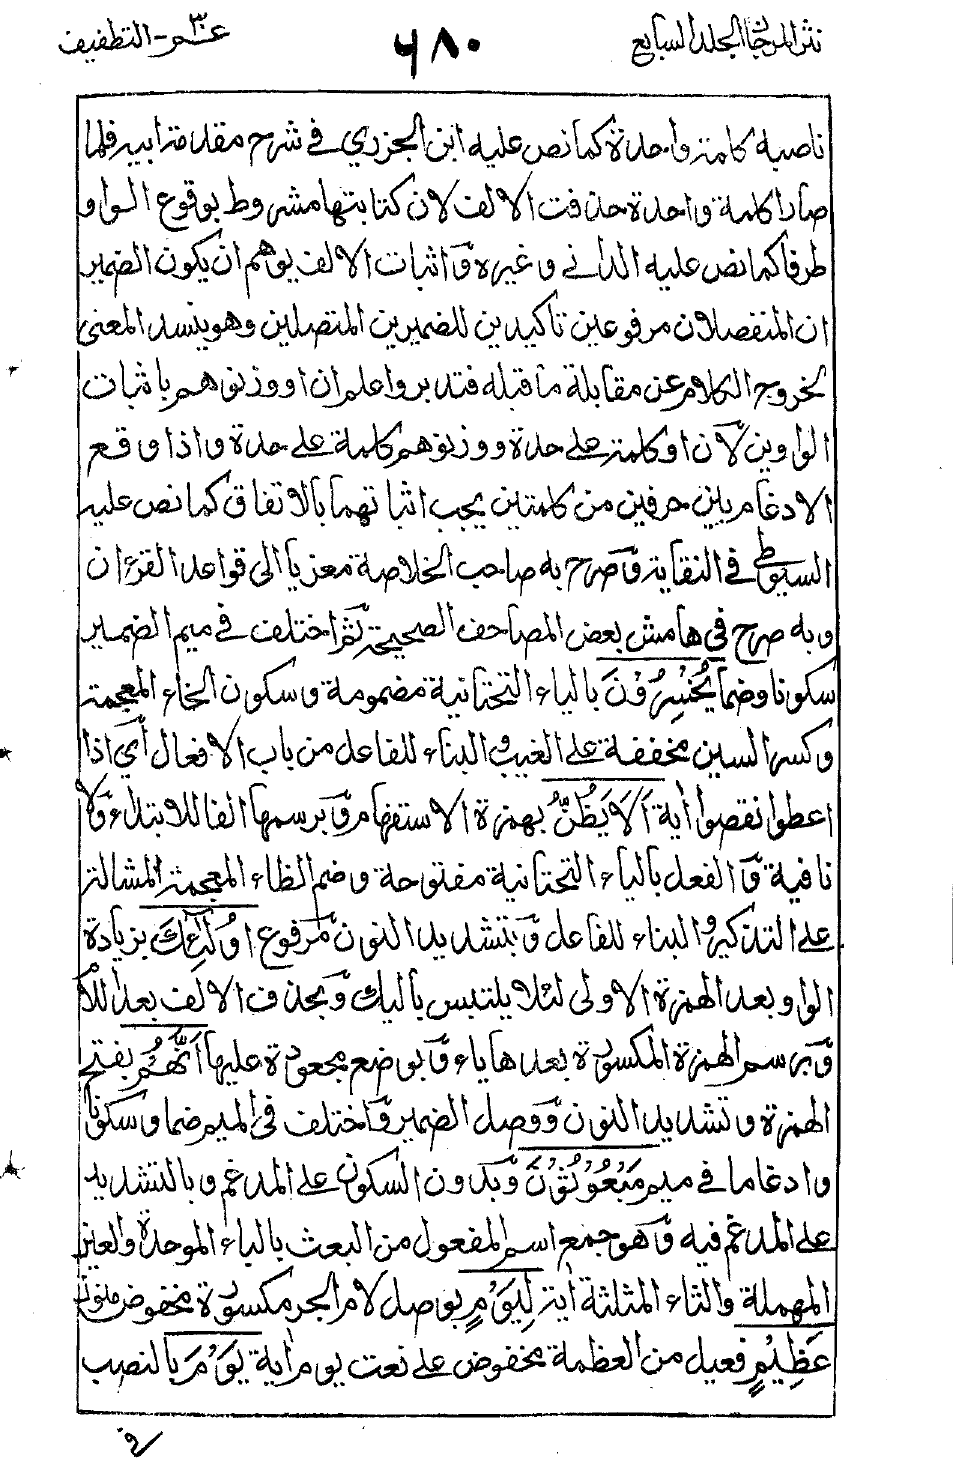 نثر المرجان الجلد السابع
٦٨٠
عم ٣٠ - التطفيف
ناصبه كلمة واحدة كما نص عليه ابن الجزري في شرح مقدمة ابيه فلما
صارا كلمة واحدة حذفت الالف لان كتابتها مشروط بوقوع الواو
طرفا كما نص عليه الداني وغيره واثبات الالف يوهم ان يكون الضمير
ان المنفصلان مرفوعين تاكيدين للضميرين المتصلين وهو يفسد المعنى
لخروج الكلام عن مقابلة ما قبله فتدبر واعلم ان اووزنوهم باثبات
الواوين لان او كلمة على حدة ووزنوهم كلمة على حدة واذا وقع
الادغام بين حرفين من كلمتين يجب اثباتهما بالاتفاق كما نص عليه
السيوطي في النقاية وصرح به صاحب الخلاصة معزيا الى قواعد القرءان
وبه صرح في هامش بعض المصاحف الصحيحة ثم اختلف في ميم الضمير
سكونا وضما يُخْسِرُوْنَ بالياء التحتانية مضمومة وسكون الخاء المعجمة
وكسر السين مخففة على الغيب والبناء للفاعل من باب الافعال أي اذا
اعطوا نقصوا أية اَلَا يَظُنُّ بهمزة الاستفهام وبرسمها الفا للابتداء ولا
نافية والفعل بالياء التحتانية مفتوحة وضم الظاء المعجمة المشالة
على التذكير والبناء للفاعل وبتشديد النون مرفوع اُولٰٓئِكَ بزيادة
الواو بعد الهمزة الاولى لئلا يلتبس باليك وبحذف الالف بعد اللام
وبرسم الهمزة المكسورة بعدها ياء وبوضع مجعودة عليها اَنَّهُمْ بفتح
الهمزة وتشديد النون ووصل الضمير واختلف في الميم ضما وسكونا
وادغاما في ميم مَبْعُوْثُوْنَ وبدون السكون على المدغم وبالتشديد
على المدغم فيه وهو جمع اسم المفعول من البعث بالباء الموحدة والعين
المهملة والثاء المثلثة أية لِيَوْمٍ بوصل لام الجر مكسورة مخفوض منون
عَظِيْمٍ فعيل من العظمة مخفوض على نعت يوم أية يَوْمَ بالنصب